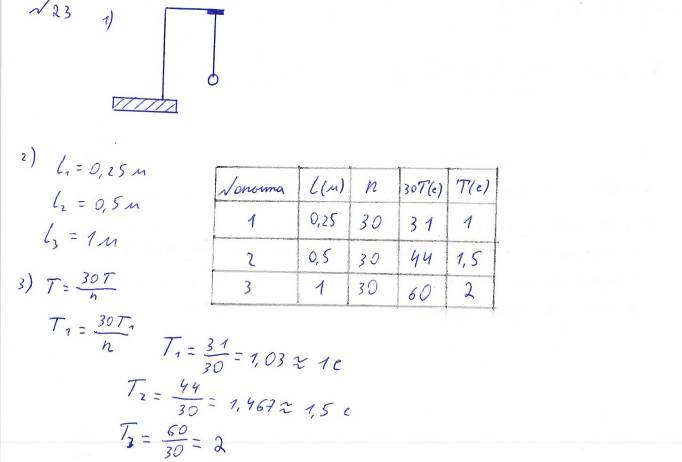 №23 1)
2) l₁ = 0,25 м
l₂ = 0,5 м
l₃ = 1 м
№ опыта l(м) n 30T(с) T(с)
1 0,25 30 31 1
2 0,5 30 44 1,5
3 1 30 60 2
3) T = 30T/n
T₁ = 30T₁/n
T₁ = 31/30 = 1,03 ≈ 1 с
T₂ = 44/30 = 1,467 ≈ 1,5 с
T₃ = 60/30 = 2